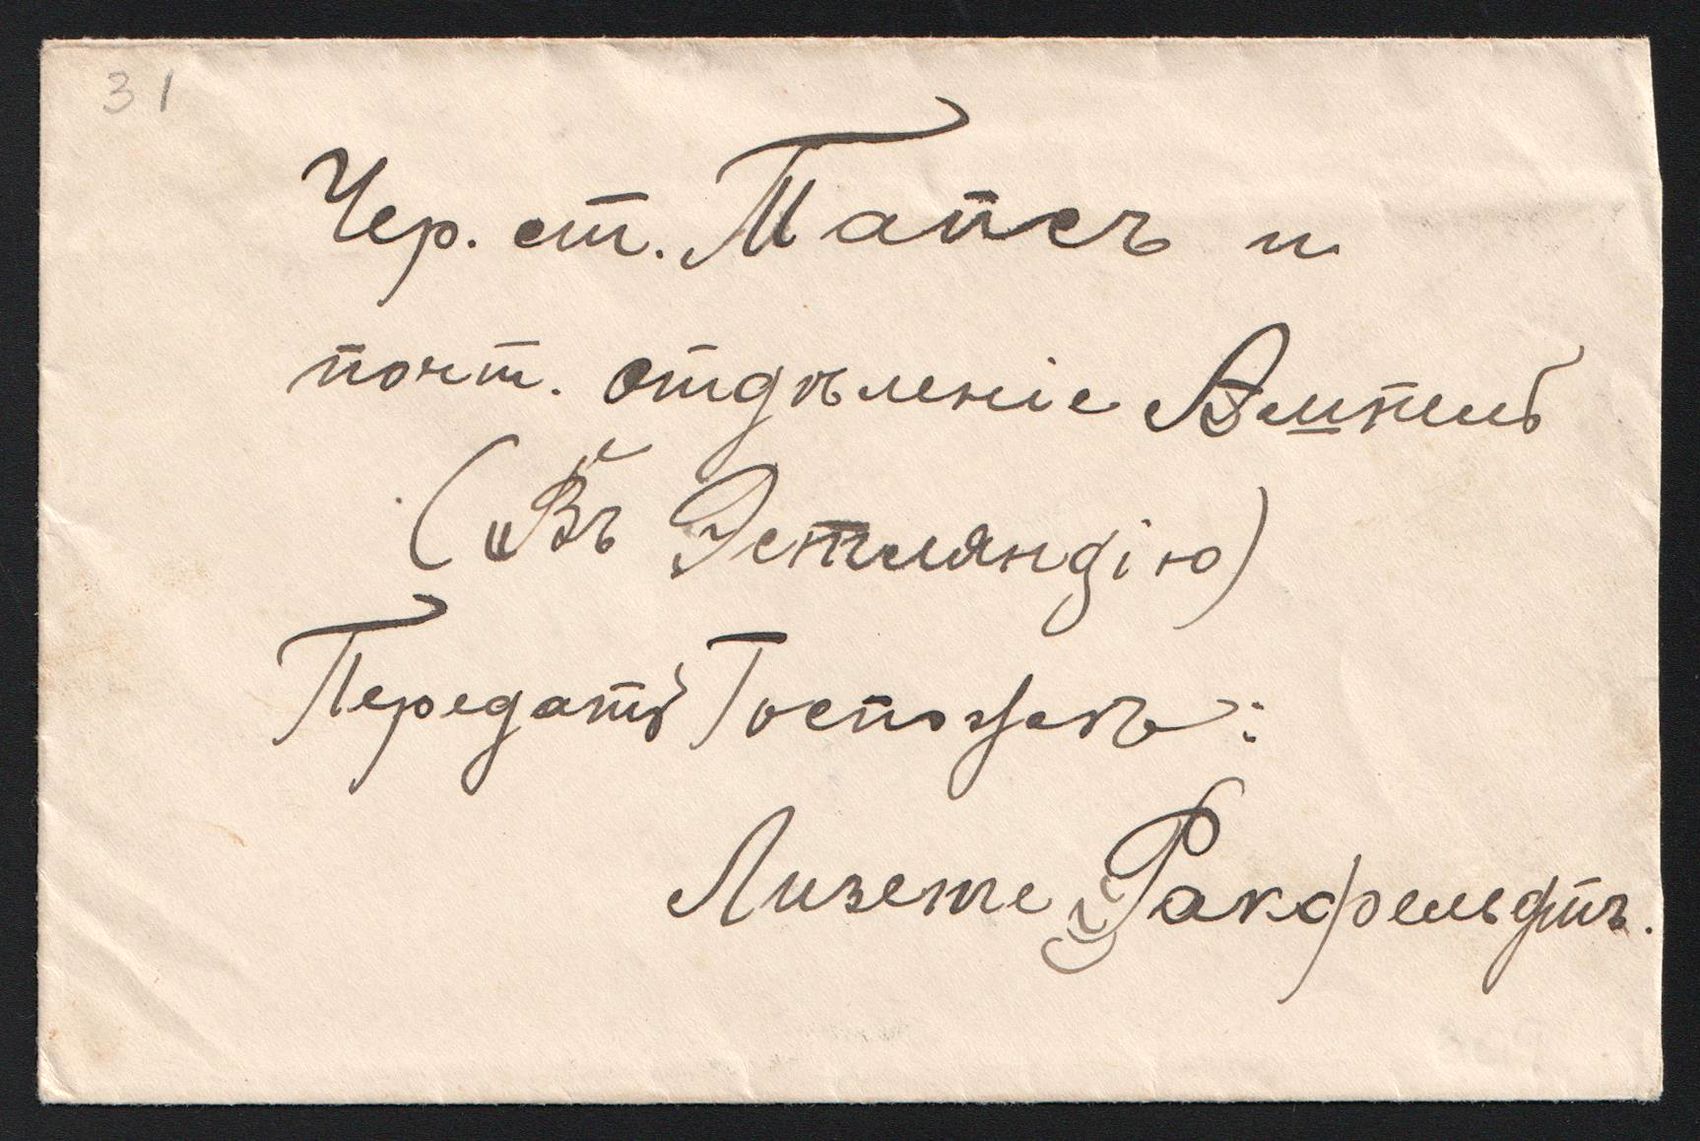 31
Чер. ст. Тапсъ и
почт. отдѣленіе Ампель
(Въ Эстляндію)
Передать Госпожѣ:
Лизете Ракфельдтъ.